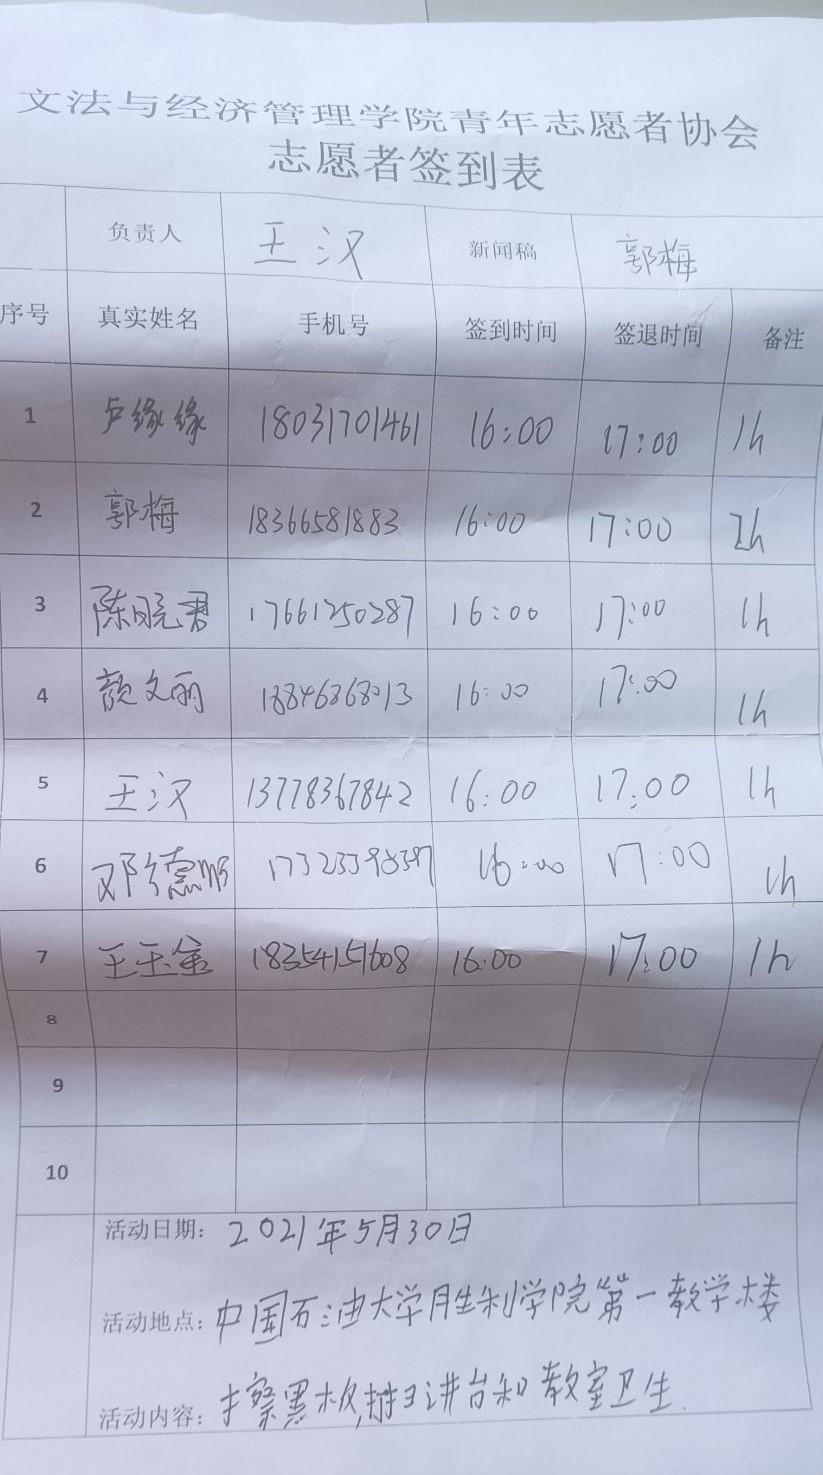 文法与经济管理学院青年志愿者协会
志愿者签到表
负责人 王汉 新闻稿 郭梅
序号 真实姓名 手机号 签到时间 签退时间 备注
1 卢缘缘 18031701461 16:00 17:00 1h
2 郭梅 18366581883 16:00 17:00 2h
3 陈晓君 17661250287 16:00 17:00 1h
4 颜文丽 16:00 17:00 1h
5 王汉 13778367842 16:00 17:00 1h
6 16:00 17:00 1h
7 王玉金 18354151608 16:00 17:00 1h
8
9
10
活动日期: 2021年5月30日
活动地点: 中国石油大学胜利学院第一教学楼
活动内容: 擦黑板,扫讲台和教室卫生.